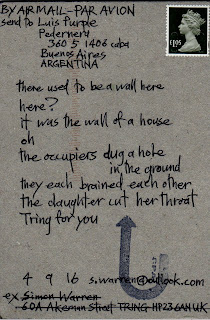 BY AIR MAIL - PAR AVION
send to Luis Purple
Pedernera
360 5 1406 caba
Buenos Aires
ARGENTINA
£1.05
there used to be a wall here
here?
it was the wall of a house
oh
the occupiers dug a hole
in the ground
they each brained each other
the daughter cut her throat
Tring for you
4 9 16 s.warren@outlook.com
ex Simon Warren
60A Akeman Street TRING HP23 6AH UK